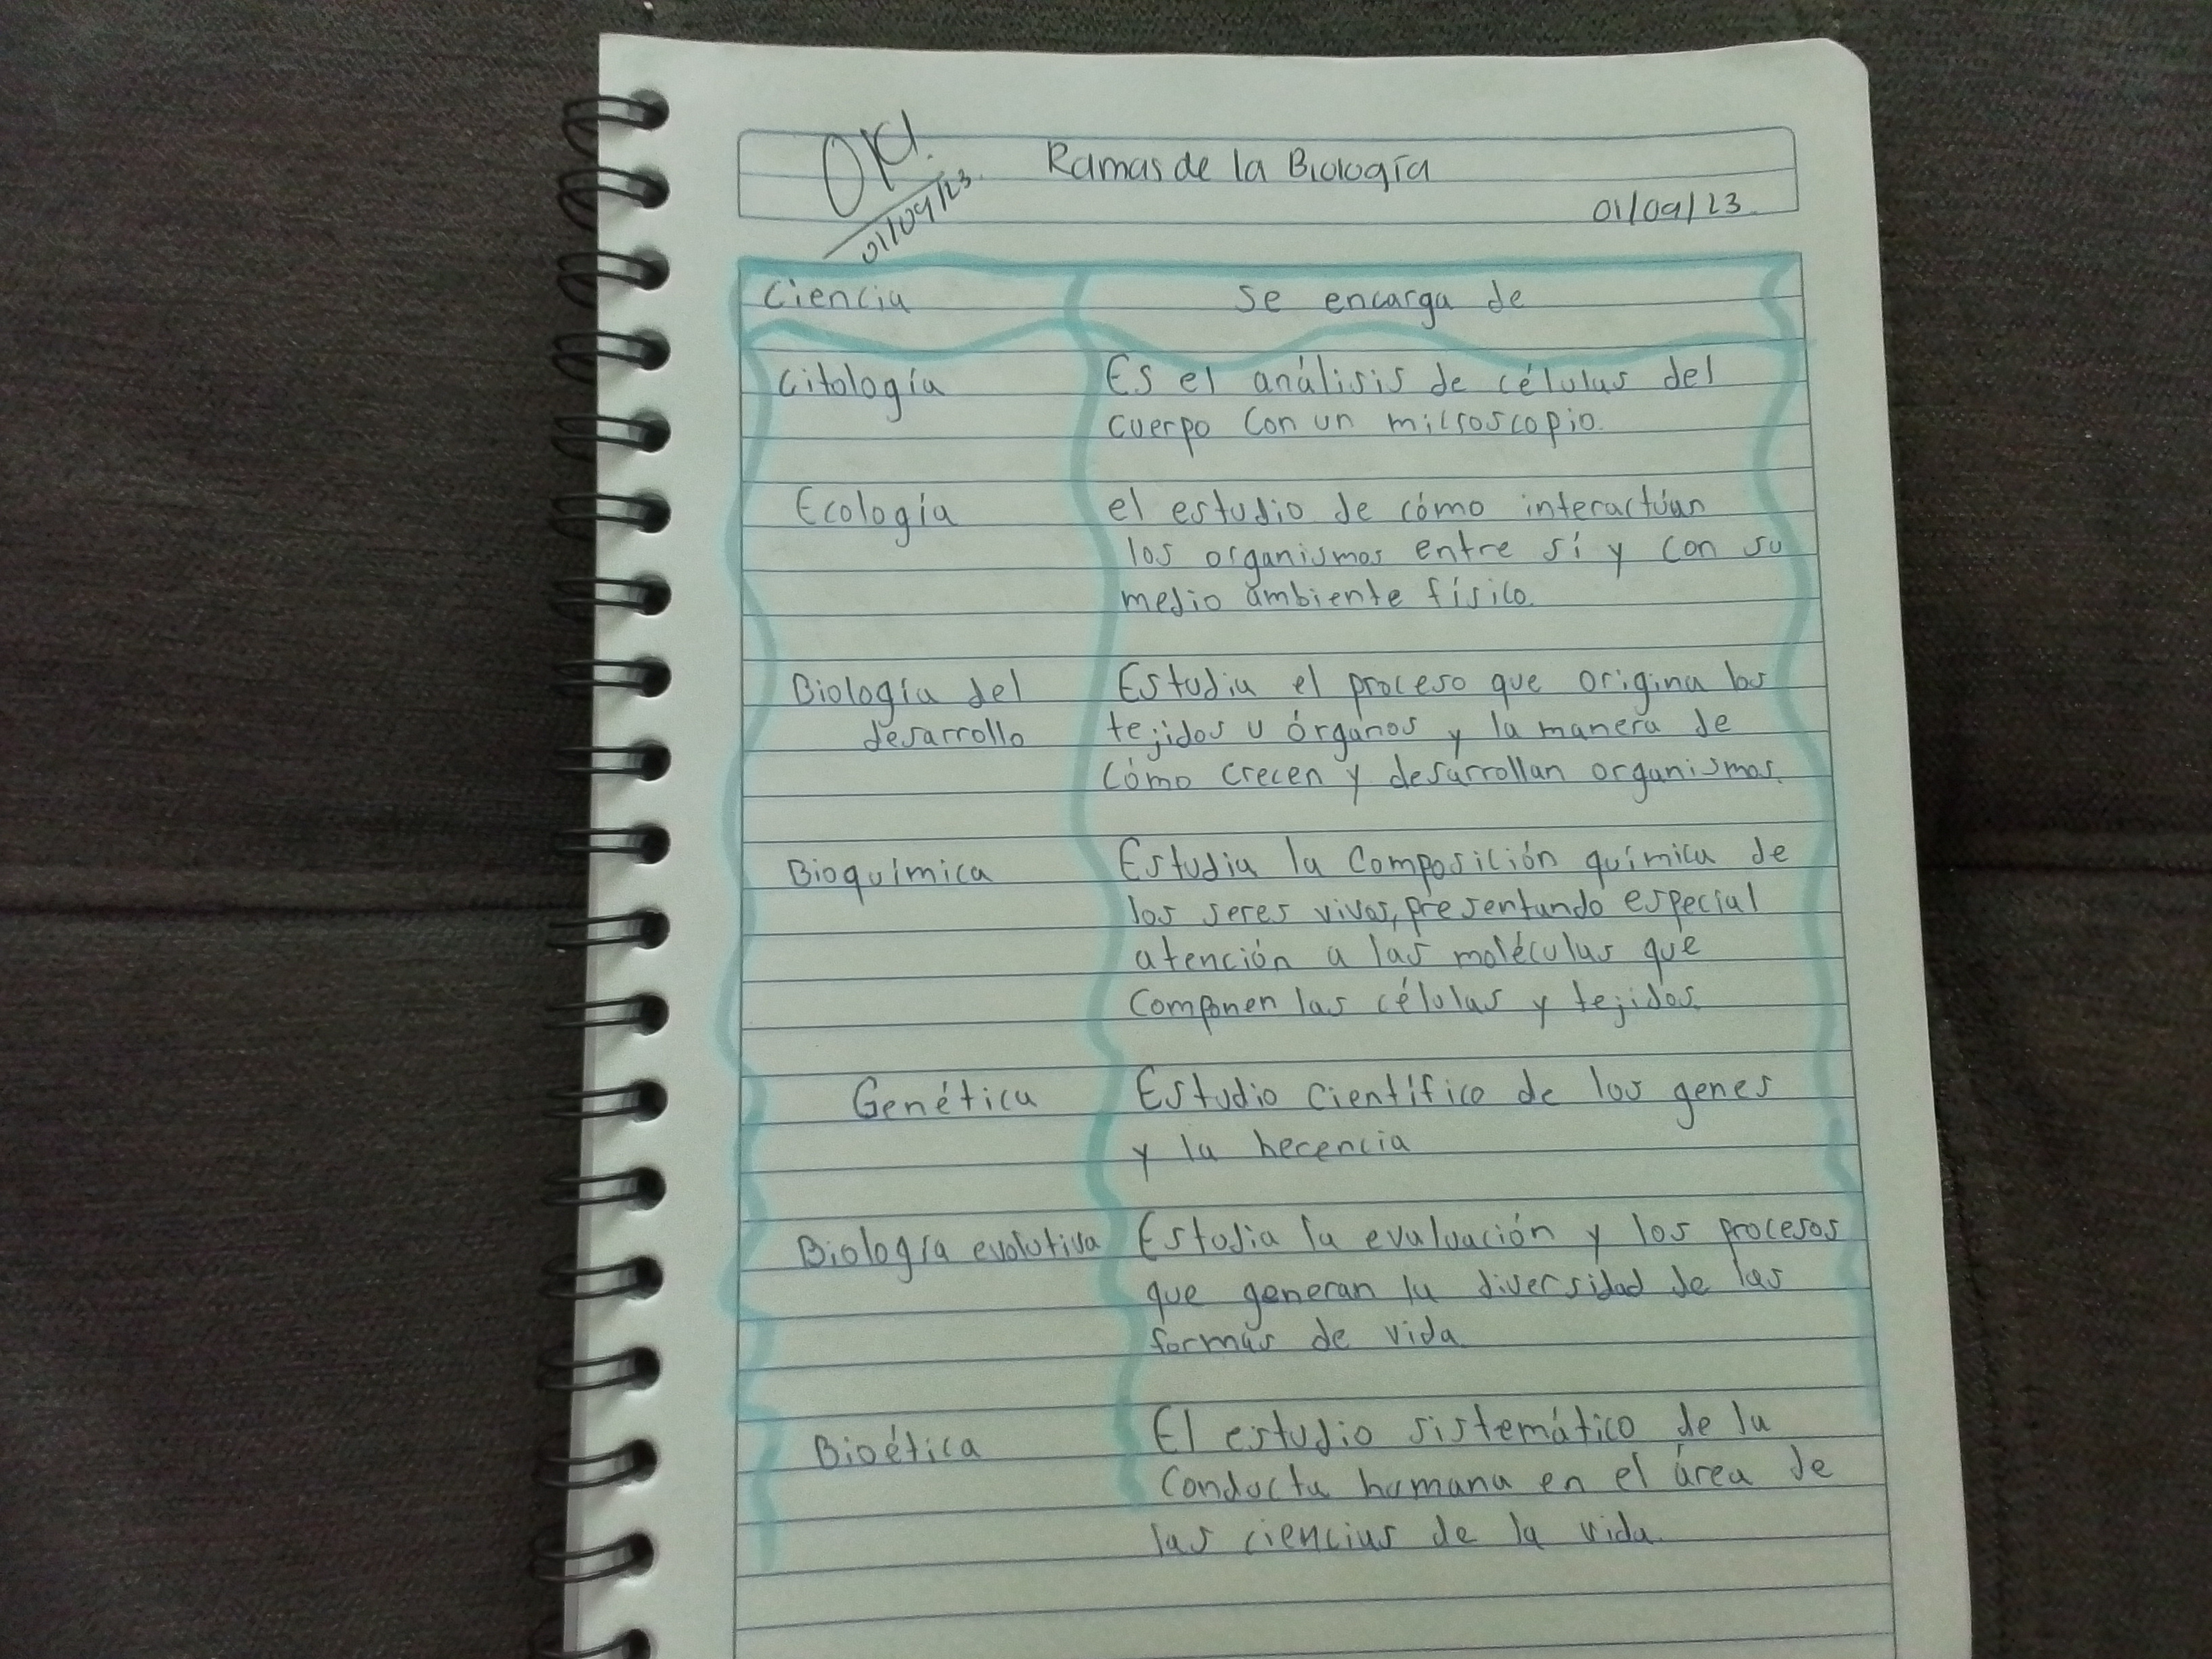 Ramas de la Biología
01/09/23
01/09/23
Ciencia se encarga de
Citología Es el análisis de células del
cuerpo con un microscopio.
Ecología el estudio de cómo interactúan
los organismos entre sí y con su
medio ambiente físico.
Biología del Estudia el proceso que origina los
desarrollo tejidos u órganos y la manera de
cómo crecen y desarrollan organismos.
Bioquímica Estudia la composición química de
los seres vivos, presentando especial
atención a las moléculas que
componen las células y tejidos.
Genética Estudio científico de los genes
y la herencia
Biología evolutiva Estudia la evaluación y los procesos
que generan la diversidad de las
formas de vida
Bioética El estudio sistemático de la
conducta humana en el área de
las ciencias de la vida.